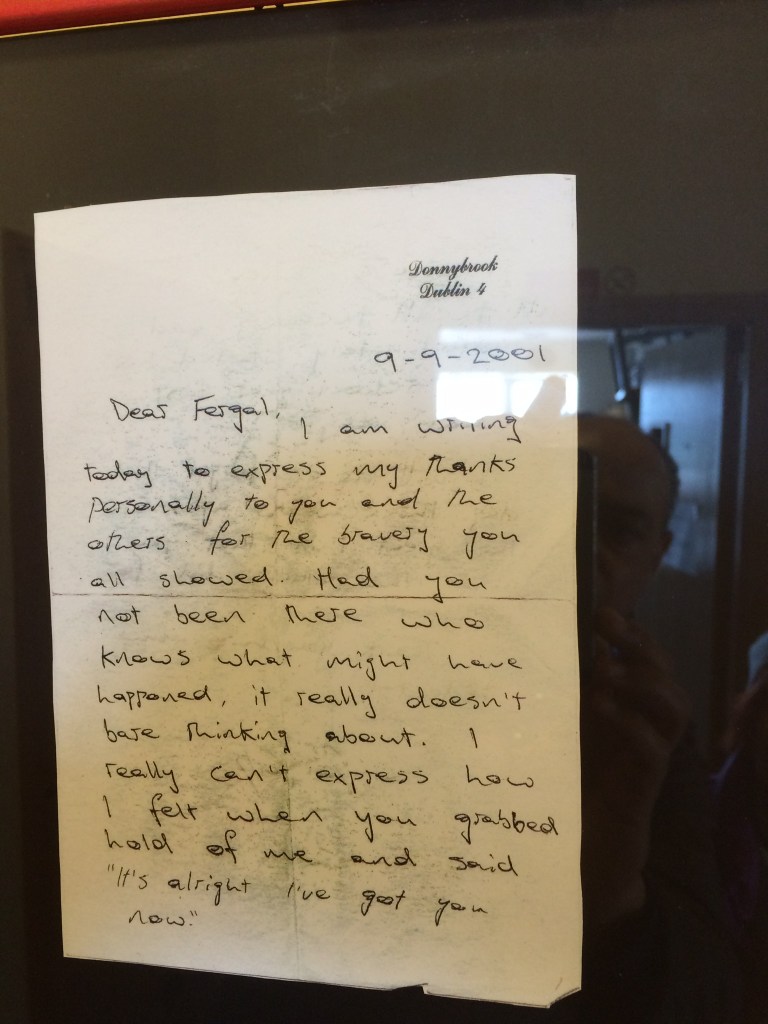 Donnybrook
Dublin 4
9-9-2001
Dear Fergal,
I am writing
today to express my thanks
personally to you and the
others for the bravery you
all showed. Had you
not been there who
knows what might have
happened, it really doesn't
bare thinking about. I
really can't express how
I felt when you grabbed
hold of me and said
"It's alright I've got you
now."